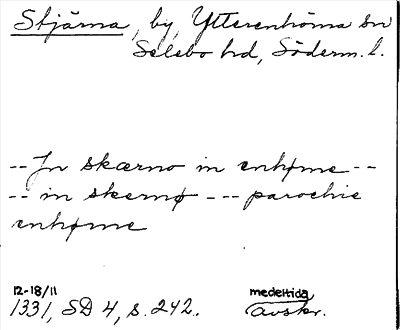 Stjärna, by, Ytterenhörna sn
Selebo hd, Söderm. l.
-- Jn skærno in enhøme --
-- in skernø --- parochie
enhøme
12-18/11 medeltida
1331, SD 4, s. 242. avskr.